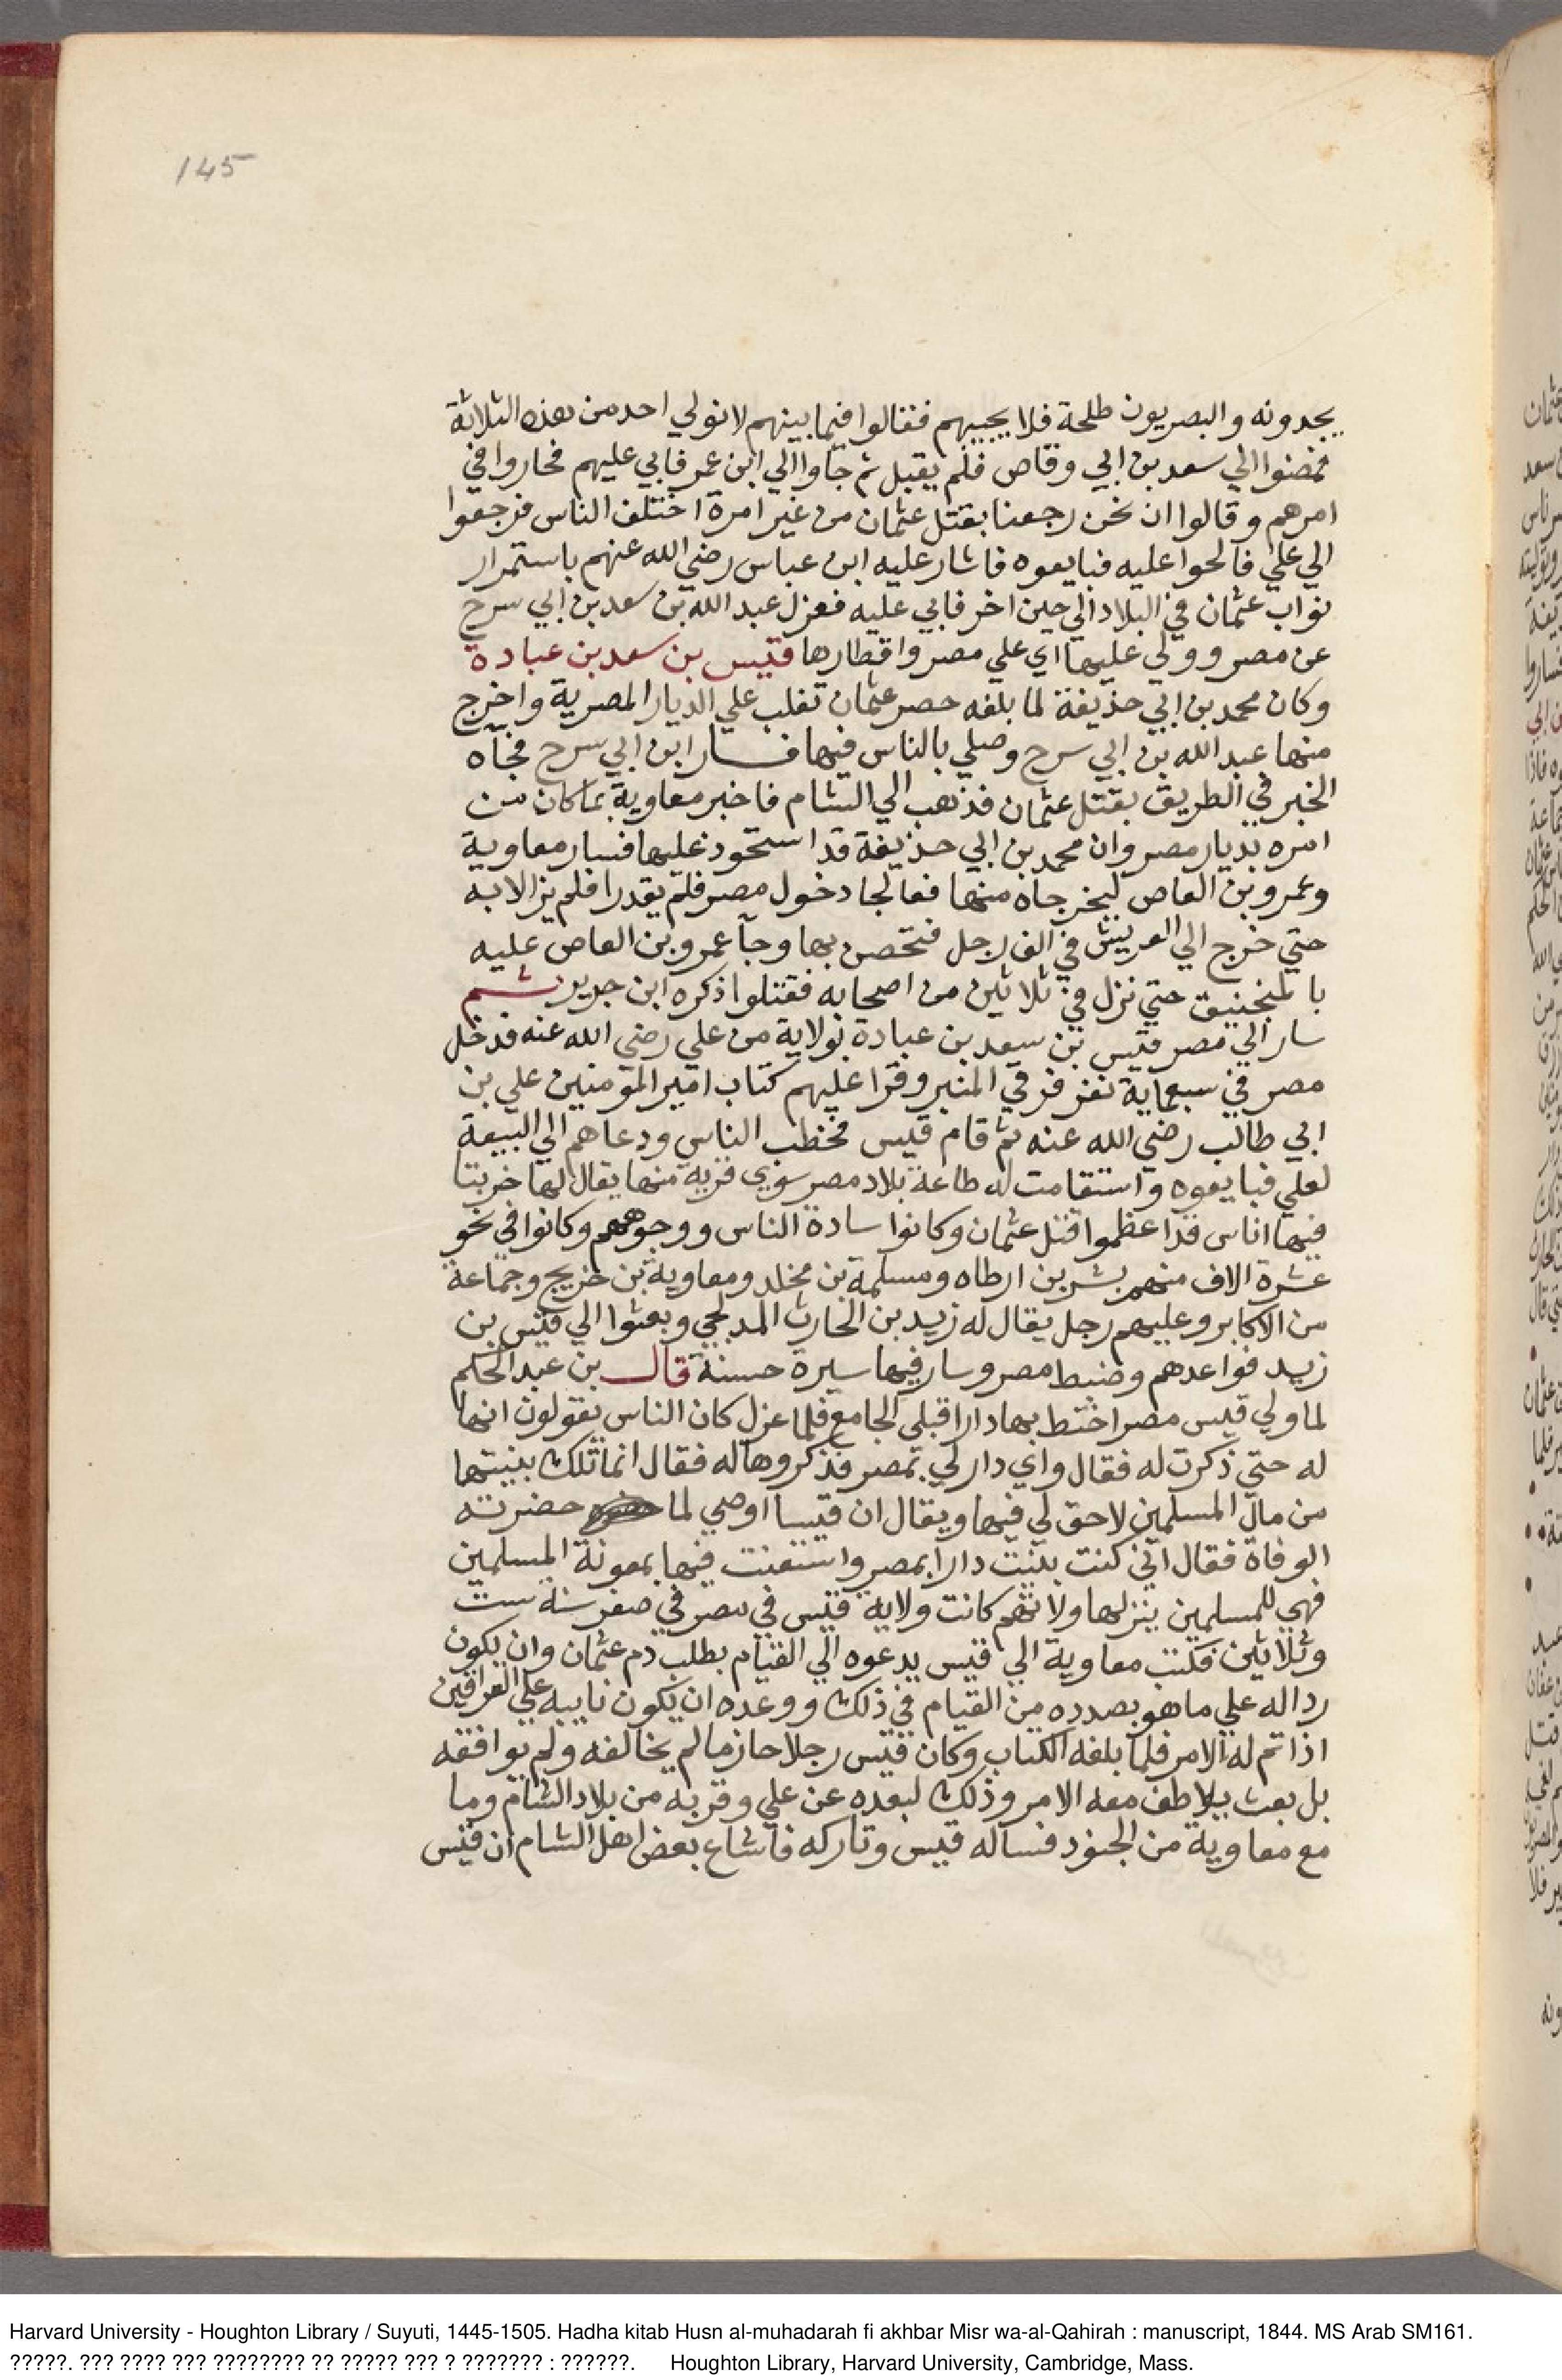 145
يجدونه والبصريون طلحة فلا يجيبهم فقالوا فيما بينهم لا نولي احد من هذه الثلاثة
فمضوا الي سعد بن ابي وقاص فلم يقبل ثم جاوا الي ابن عمر فابي عليهم فحاروا في
امرهم وقالوا ان نحن رجعنا بقتل عثمان من غير امرة اختلف الناس فرجعوا
الي علي فالحوا عليه فبايعوه فاشار عليه ابن عباس رضي الله عنهم باستمرار
نواب عثمان في البلاد الي حين اخر فابي عليه فعزل عبد الله بن سعد بن ابي سرح
عن مصر وولي عليها اي علي مصر واقطارها قيس بن سعد بن عبادة
وكان محمد بن ابي حذيفة لما بلغه حصر عثمان تغلب علي الديار المصرية واخرج
منها عبد الله بن ابي سرح وصلي بالناس فيها فسار ابن ابي سرح فجاه
الخبر في الطريق بقتل عثمان فذهب الي الشام فاخبر معاوية بما كان من
امره بديار مصر وان محمد بن ابي حذيفة قد استحوذ عليها فسار معاوية
وعمرو بن العاص ليخرجاه منها فعالجا دخول مصر فلم يقدرا فلم يزالا به
حتي خرج الي العريش في الف رجل فتحصن بها وجآ عمرو بن العاص عليه
بالمنجنيق حتي نزل في ثلاثين من اصحابه فقتلوا ذكره ابن جرير ثم
سار الي مصر قيس بن سعد بن عبادة بولاية من علي رضي الله عنه فدخل
مصر في سبعماية نفر فرقي المنبر وقرا عليهم كتاب امير المومنين علي بن
ابي طالب رضي الله عنه ثم قام قيس فخطب الناس ودعاهم الي البيعة
لعلي فبايعوه واستقامت له طاعة بلاد مصر سوي قرية منها يقال لها خربتا
فيها اناس قد اعظموا قتل عثمان وكانوا سادة الناس ووجوههم وكانوا في نحو
عشرة الاف منهم بشر بن ارطاه ومسلمة بن مخلد ومعاوية بن خريج وجماعة
من الاكابر وعليهم رجل يقال له زيد بن الحارث المدلجي وبعثوا الي قيس بن
زيد فواعدهم وضبط مصر وسار فيها سيرة حسنة قال بن عبد الحكم
لما ولي قيس مصر اختط بها دارا قبلي الجامع فلما عزل كان الناس يقولون انها
له حتي ذكرت له فقال واي دار لي بمصر فذكروها له فقال انما تلك بنيتها
من مال المسلمين لا حق لي فيها ويقال ان قيسا اوصي لما حضرته
الوفاة فقال اني كنت بنيت دارا بمصر واستعنت فيها بمعونة المسلمين
فهي للمسلمين ينزلها ولاتهم كانت ولاية قيس في مصر في صفر سنة ست
وثلاثين فكتب معاوية الي قيس يدعوه الي القيام بطلب دم عثمان وان يكون
رداله علي ما هو بصدده من القيام في ذلك ووعده ان يكون نايبه علي العراقين
اذا تم له الامر فلما بلغه الكتاب وكان قيس رجلا حازما لم يخالفه ولم يوافقه
بل بعث يلاطف معه الامر وذلك لبعده عن علي وقربه من بلاد الشام وما
مع معاوية من الجنود فساله قيس وتاركه فاشاع بعض اهل الشام ان قيس
Harvard University - Houghton Library / Suyuti, 1445-1505. Hadha kitab Husn al-muhadarah fi akhbar Misr wa-al-Qahirah : manuscript, 1844. MS Arab SM161.
?????. ??? ???? ??? ???????? ?? ????? ??? ? ??????? : ??????. Houghton Library, Harvard University, Cambridge, Mass.